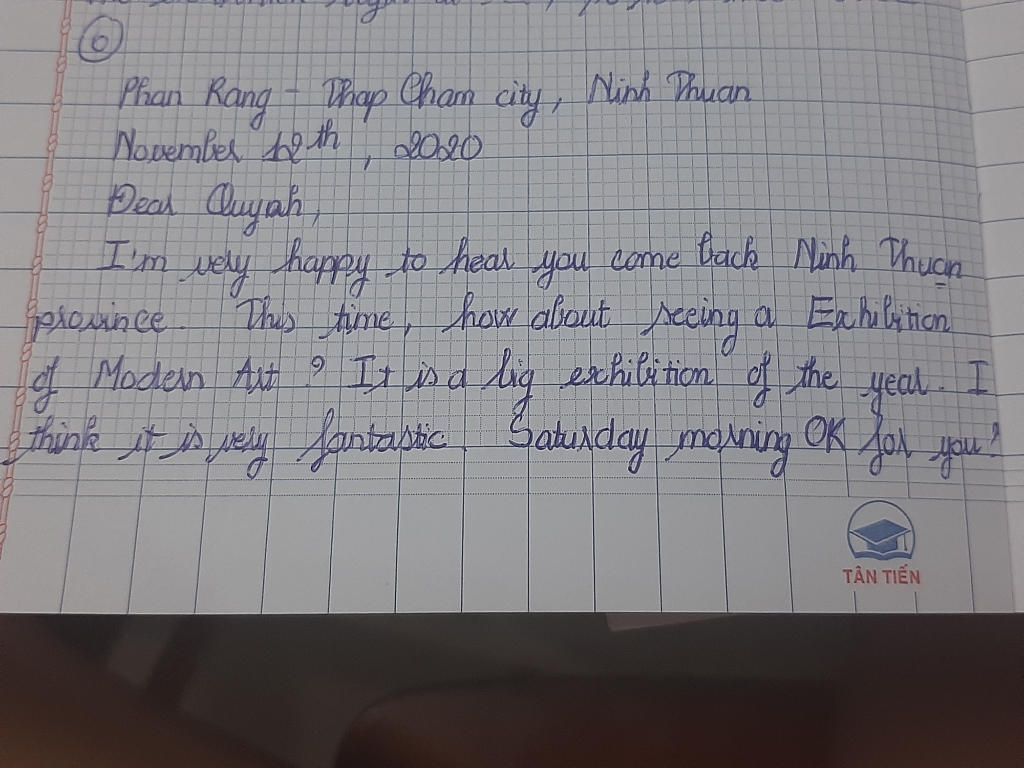 6
Phan Rang - Thap Cham city, Ninh Thuan
November 12th, 2020
Dear Quynh,
I'm very happy to hear you come back Ninh Thuan
province. This time, how about seeing a Exhibition
of Modern Art? It is a big exhibition of the year. I
think it is very fantastic. Saturday morning OK for you?
TÂN TIẾN